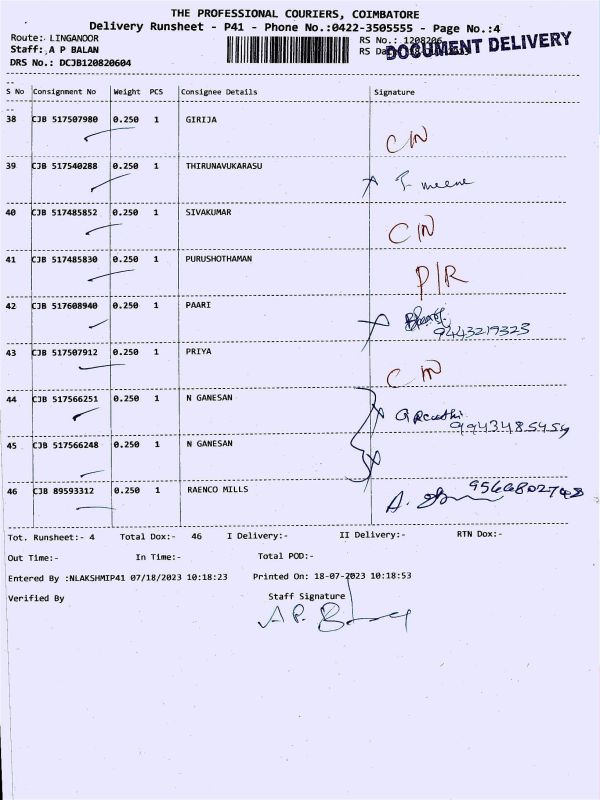 THE PROFESSIONAL COURIERS, COIMBATORE
Delivery Runsheet - P41 - Phone No.:0422-3505555 - Page No.:4
Route: LINGANOOR
RS No.: 1208206
Staff: A P BALAN
RS Da
DOCUMENT DELIVERY
DRS No.: DCJB120820604
S No Consignment No Weight PCS Consignee Details Signature
38 CJB 517507980 0.250 1 GIRIJA
C/N
39 CJB 517540288 0.250 1 THIRUNAVUKARASU
T- meene
40 CJB 517485852 0.250 1 SIVAKUMAR
C/N
41 CJB 517485830 0.250 1 PURUSHOTHAMAN
P/R
42 CJB 517608940 0.250 1 PAARI
9443219323
43 CJB 517507912 0.250 1 PRIYA
C/N
44 CJB 517566251 0.250 1 N GANESAN
9943485454
45 CJB 517566248 0.250 1 N GANESAN
46 CJB 89593312 0.250 1 RAENCO MILLS
A.
Tot. Runsheet:- 4 Total Dox:- 46 I Delivery:- II Delivery:- RTN Dox:-
Out Time:- In Time:- Total POD:-
Entered By :NLAKSHMIP41 07/18/2023 10:18:23 Printed On: 18-07-2023 10:18:53
Verified By Staff Signature
A P.